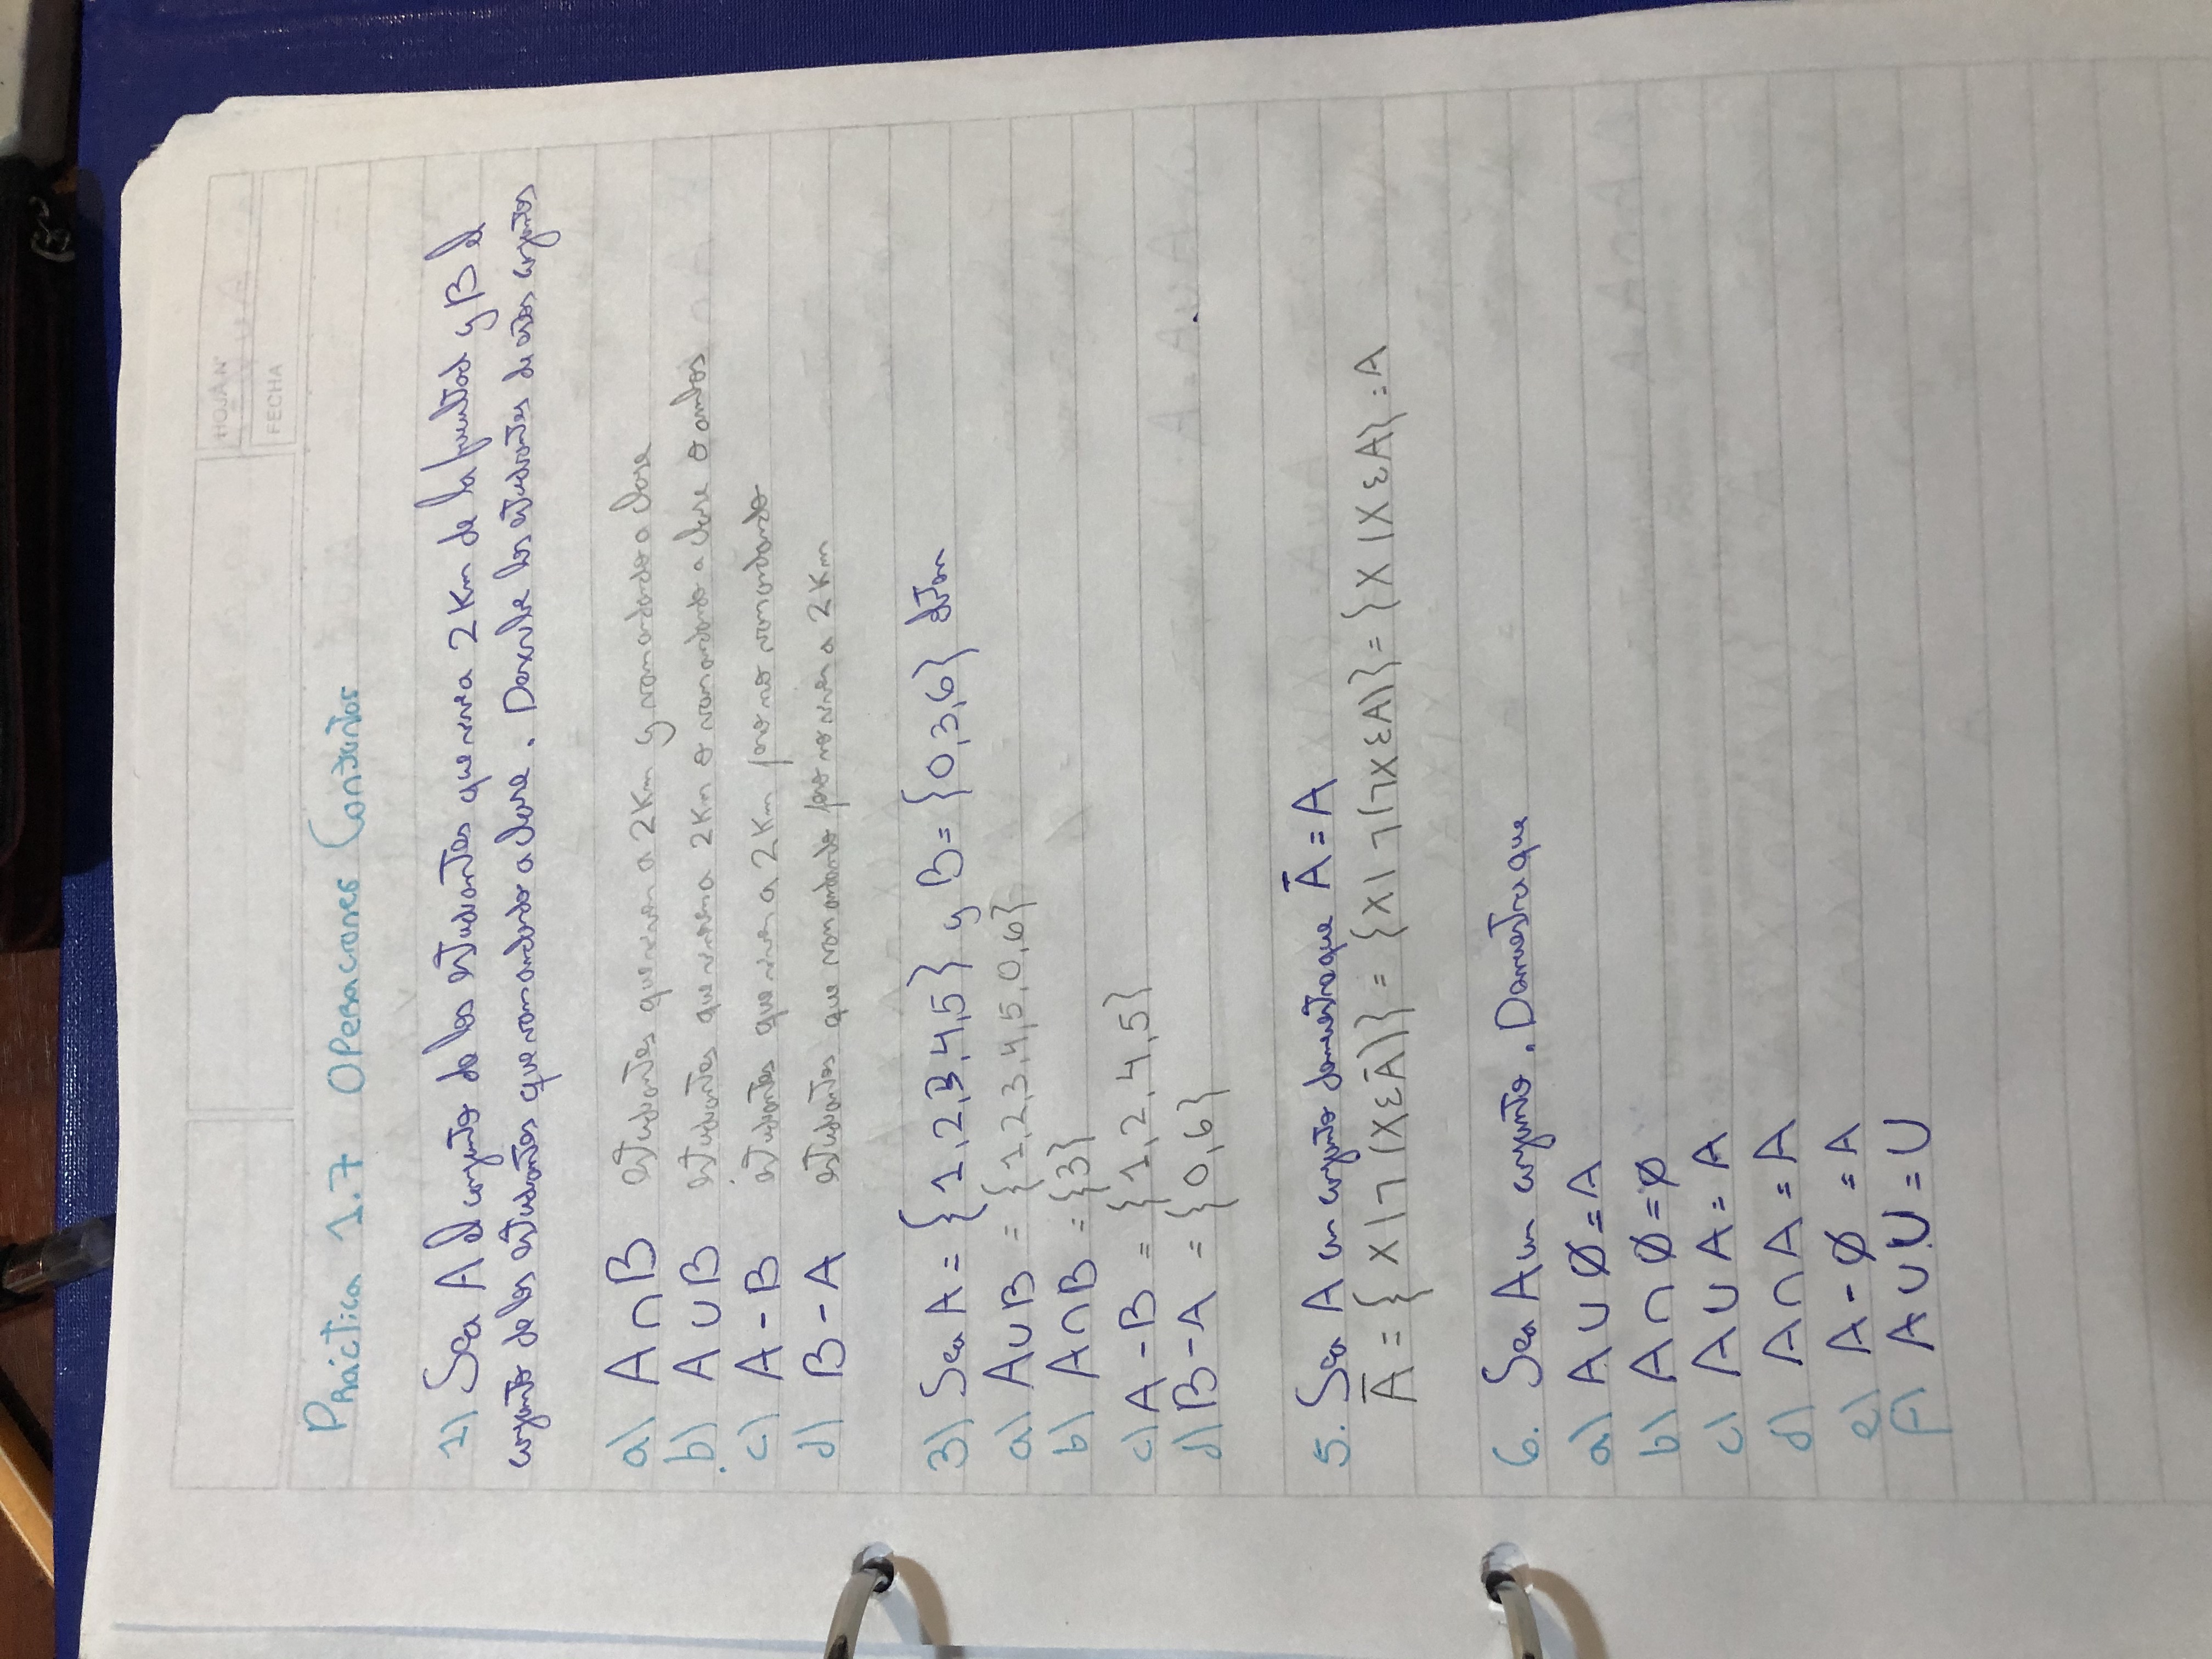 HOJA N°
FECHA
Práctica 1.7 Operaciones Conjuntos
1) Sea A el conjunto de los estudiantes que vive a 2 Km de la facultad y B el
conjunto de los estudiantes que van andando a clase. Describe los estudiantes de estos conjuntos
a) A ∩ B estudiantes que viven a 2 Km y van andando a clase
b) A ∪ B estudiantes que viven a 2 Km o van andando a clase o ambos
c) A - B estudiantes que viven a 2 Km pero no van andando
d) B - A estudiantes que van andando pero no viven a 2 Km
3) Sea A = {1,2,3,4,5} y B = {0,3,6}
a) A∪B = {1,2,3,4,5,0,6}
b) A∩B = {3}
c) A - B = {1,2,4,5}
d) B - A = {0,6}
5. Sea A un conjunto demuestra que Ā = A
Ā = {X|¬(XεĀ)} = {X|¬(¬XεA)} = {X|XεA} = A
6. Sea A un conjunto. Demuestra que
a) A ∪ Ø = A
b) A ∩ Ø = Ø
c) A ∪ A = A
d) A ∩ A = A
e) A - Ø = A
f) A ∪ U = U